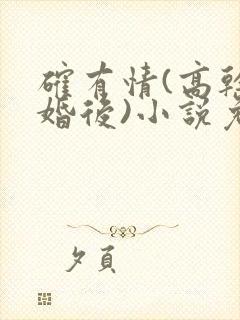 確有情(高幹
婚後)小說免
夕頁